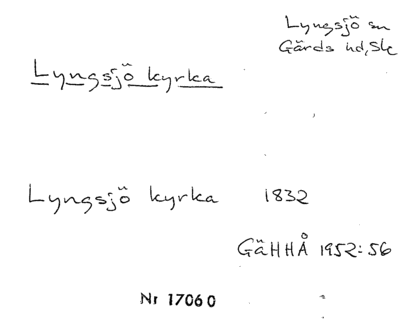 Lyngsjö sn
Gärds hd, Sk
Lyngsjö kyrka
Lyngsjö kyrka 1832
GäHHÅ 1952:56
Nr 17060